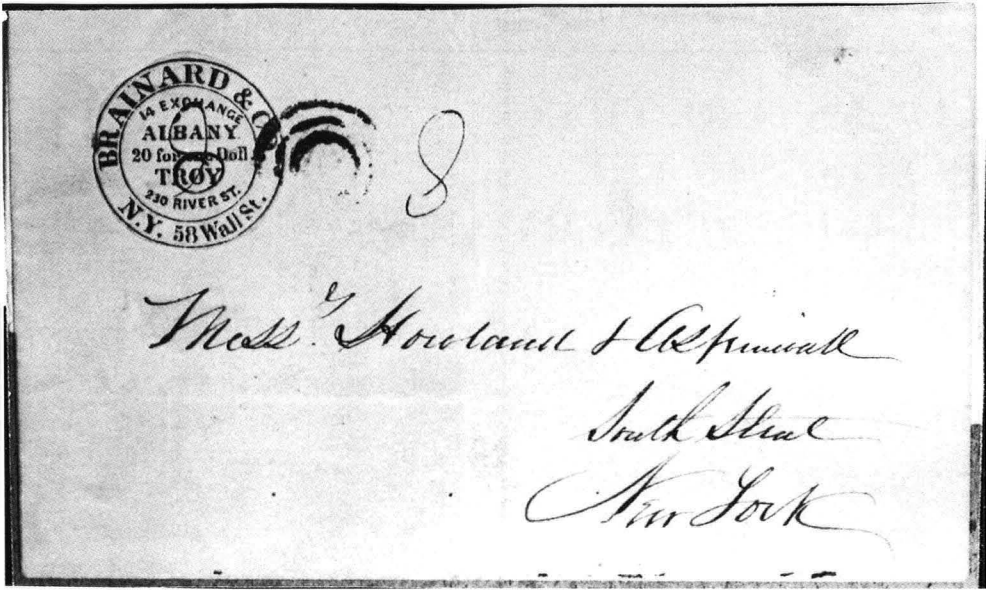 BRAINARD & CO.
14 EXCHANGE
ALBANY
20 for one Doll.
TROY
230 RIVER ST.
N.Y. 58 Wall St.
8
8
Mess.rs Howland & Aspinwall
South Street
New York